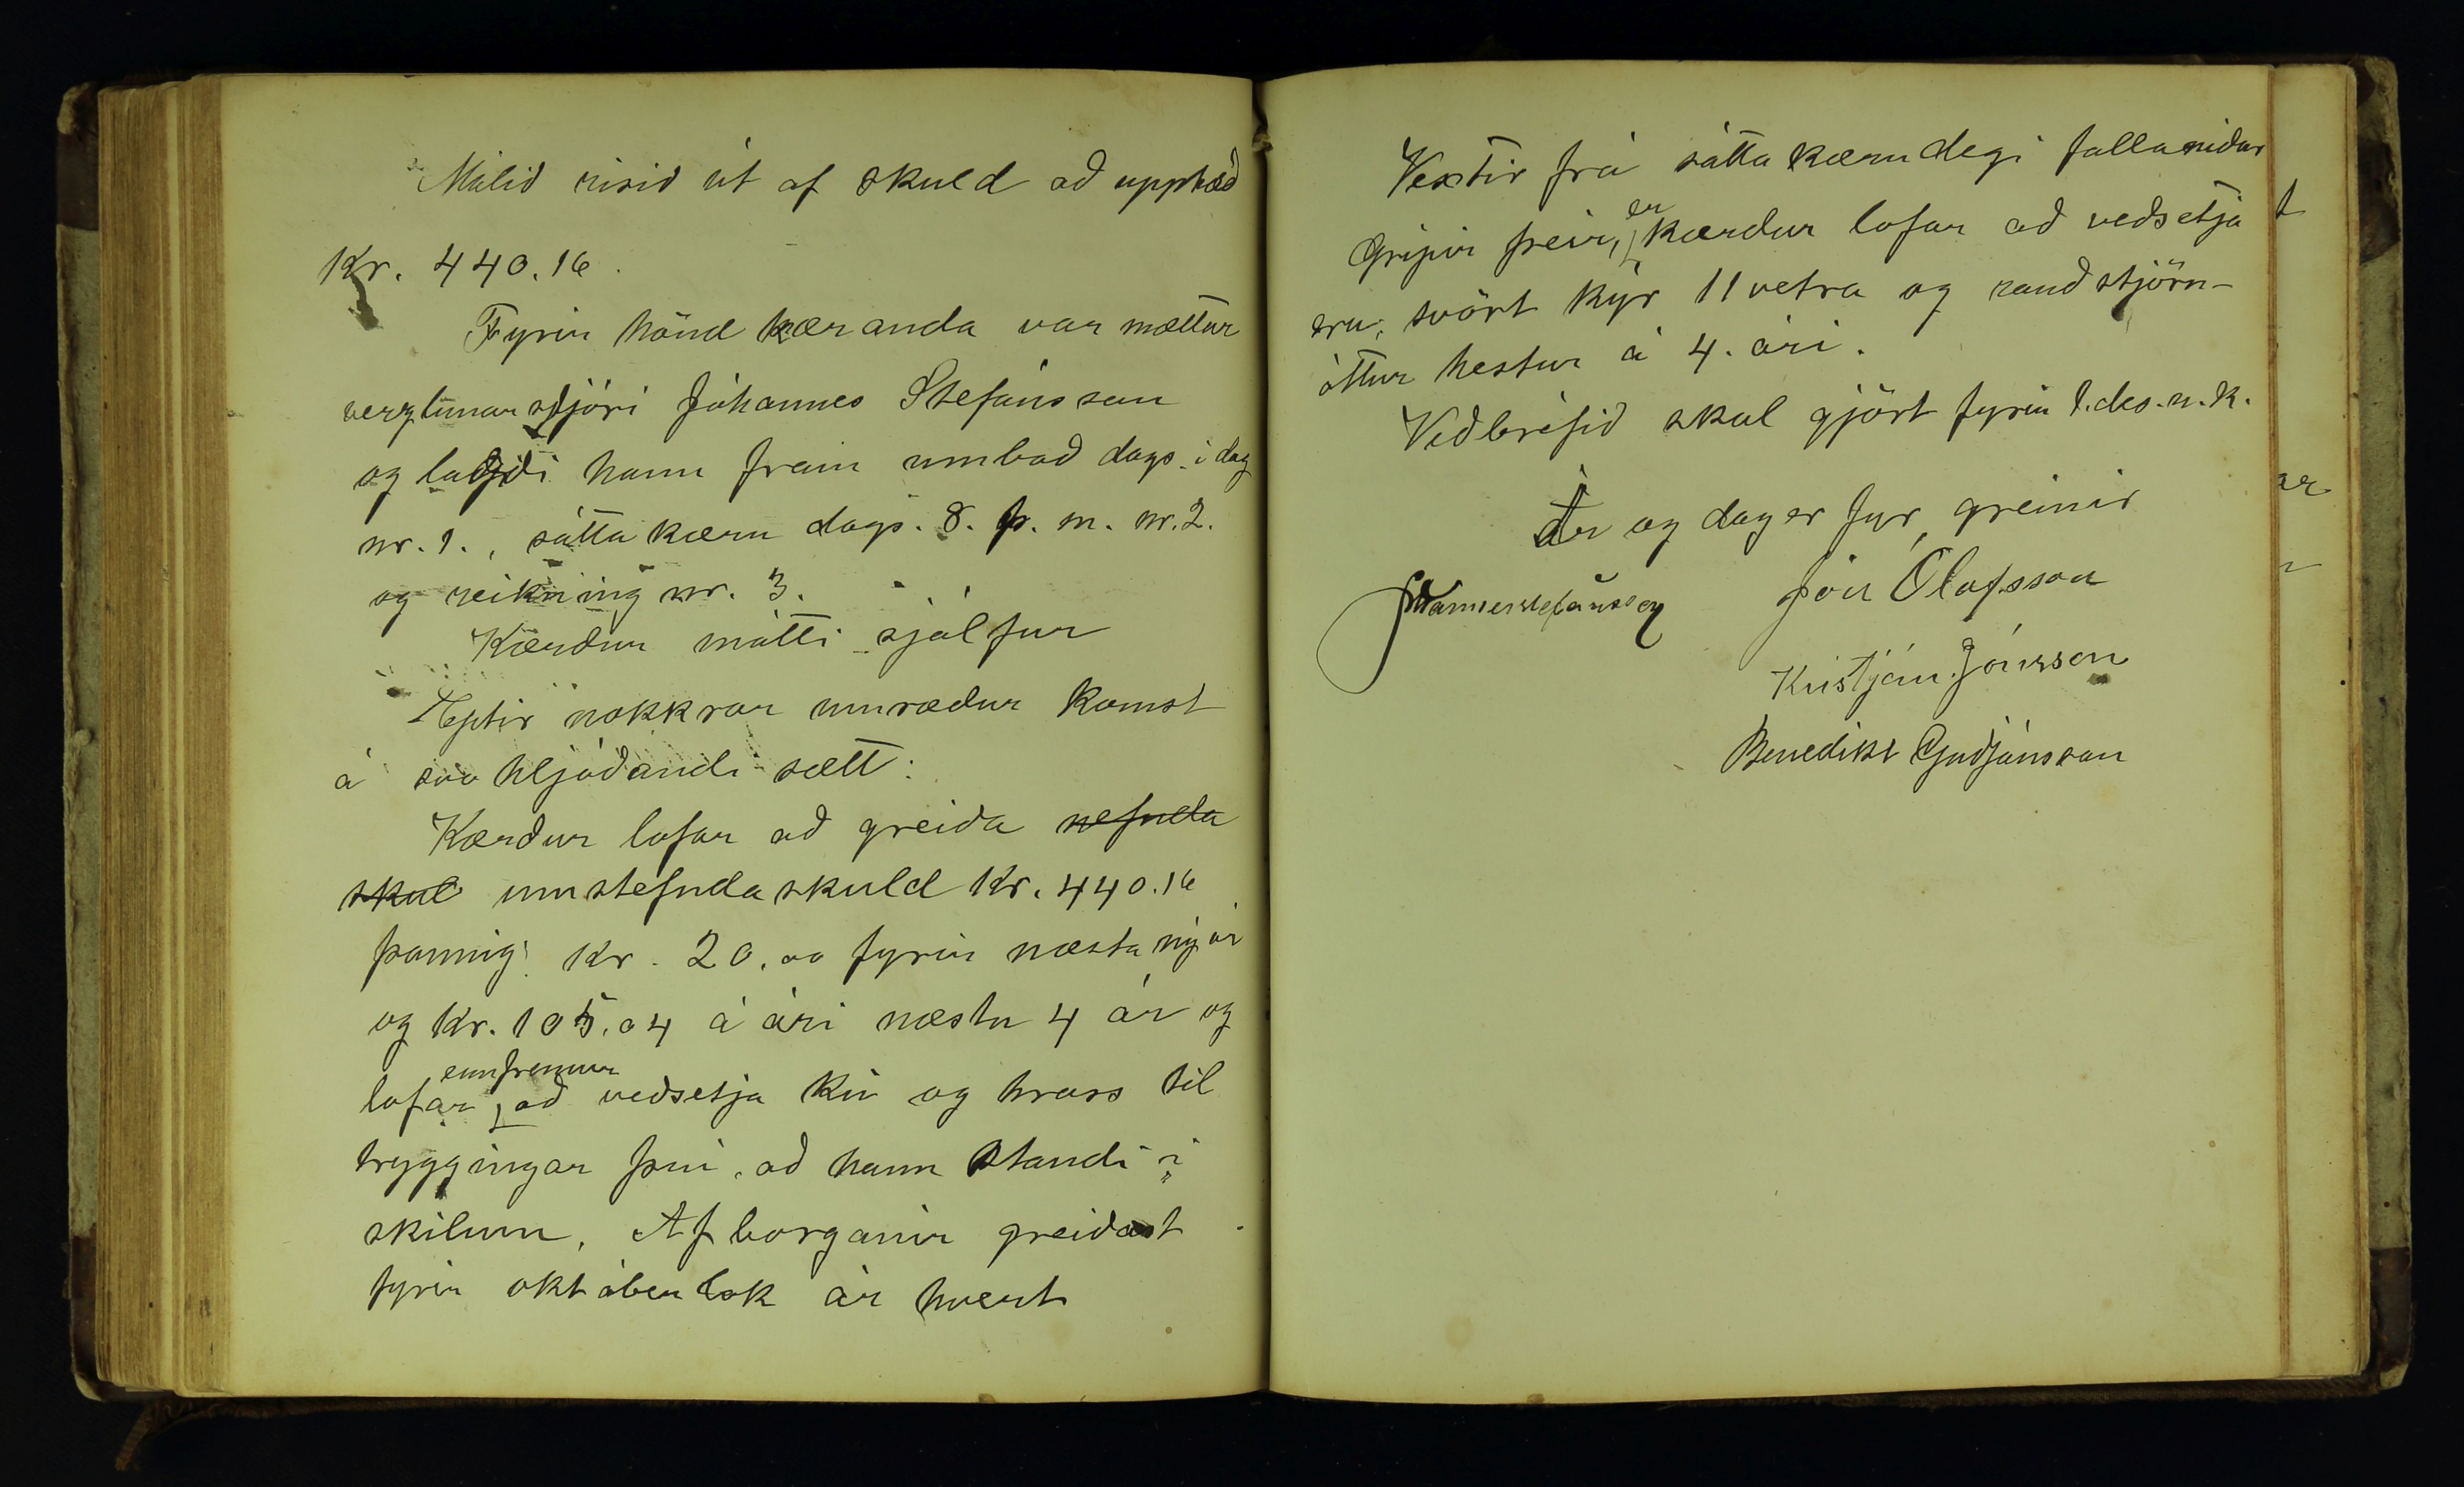 Málið risið út af skuld að upphæð
Kr. 440.16.
Fyrir hönd kæranda var mættur
verzlunarstjóri Jóhannes Stefánsson
og lagði hann fram umboð dags. í dag
nr. 1., sáttakæru dags. 8. þ. m. nr. 2.
og reikning nr. 3.
Kærður mætti sjálfur
Eptir nokkrar umræður komst
á svo hljóðandi sætt:
Kærður lofar að greiða nefnda
skul umstefnda skuld Kr. 440.16
þannig: Kr. 20.00 fyrir næsta nýár
og Kr. 105.04 á ári næstu 4 ár og
lofar ennfremur að veðsetja kú og hross til
tryggingar því, að hann standi í
skilum. Afborganir greiðast
fyrir októberlok ár hvert
Vextir frá sáttakærudegi falla niður
Gripir þeir, er kærður lofar að veðsetja
eru: svört kýr 11 vetra og rauðstjörn-
óttur hestur á 4. ári.
Veðbréfið skal gjört fyrir 1. des. n. k.
Ár og dag er fyr greinir
Jóhannes Stefánsson Jón Ólafsson
Kristján Jónsson
Benedikt Guðjónsson